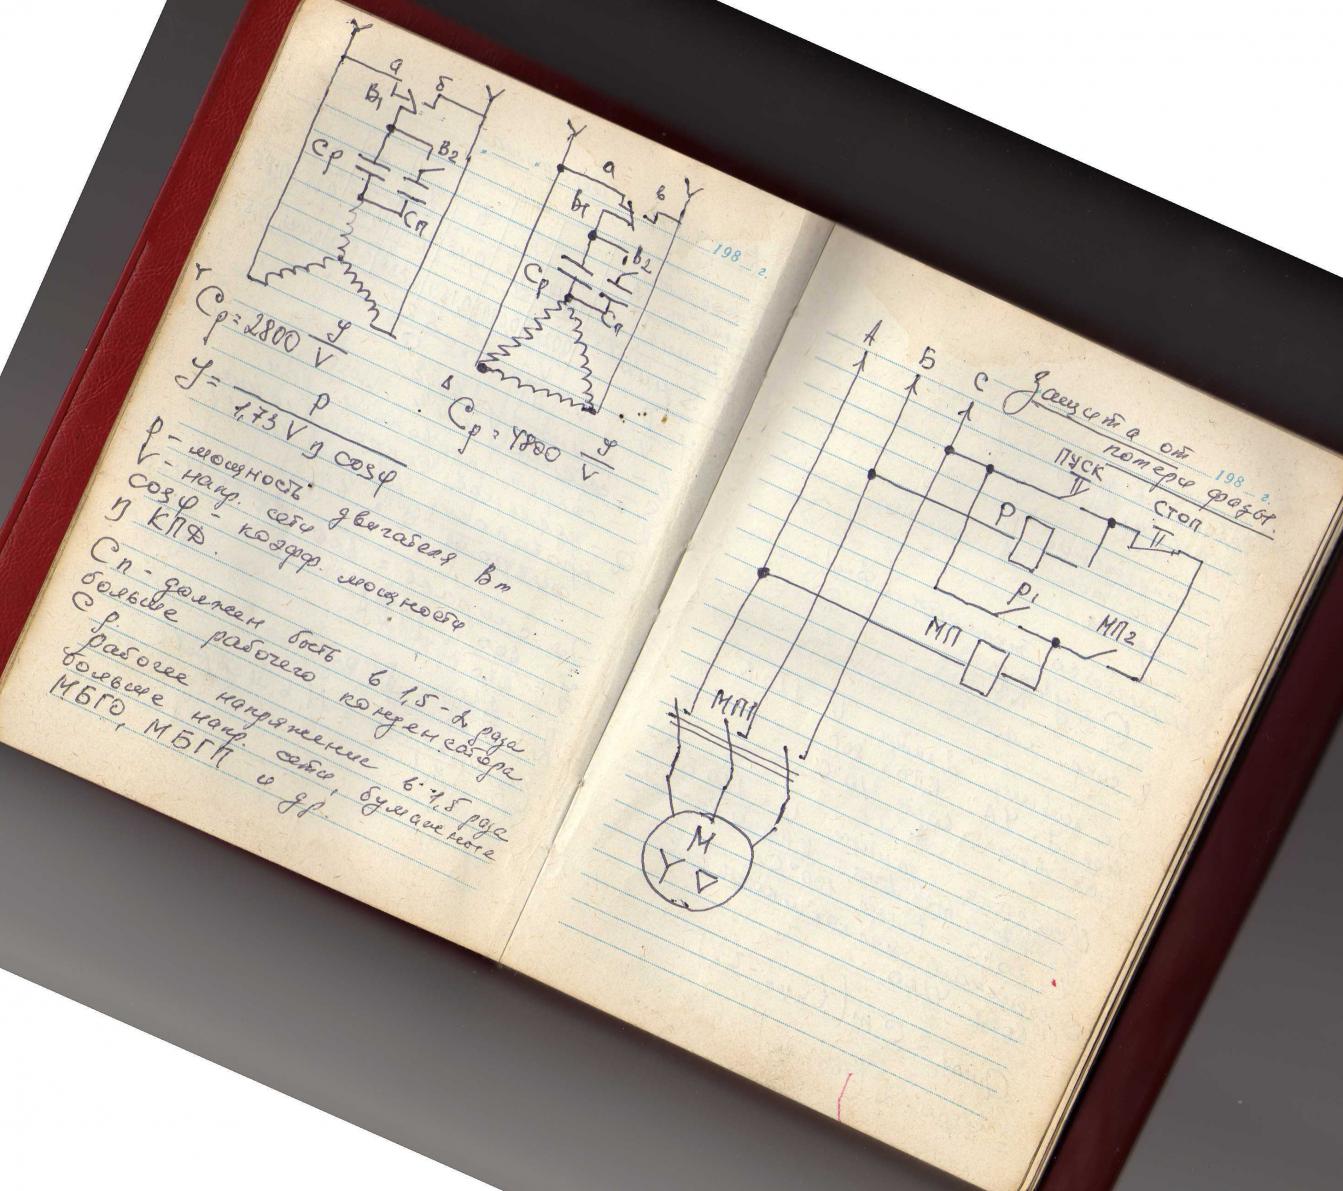 а
б
В₁
В₂
Ср
Сп
а
в
В₁
В₂
Ср
Сп
198 г.
Y
Cр = 2800 J/V
J = P / 1,73 V η cosφ
Δ
Cр = 4800 J/V
P - мощность двигателя Вт
V - напр. сети
cosφ - коэфф. мощности
η КПД.
Сп - должен быть в 1,5-2 раза
больше рабочего конденсатора
Ср.
Рабочее напряжение в 1,5 раза
больше напр. сети, бумажные
МБГО, МБГП и др.
А
Б
С
Защита от
потери фазы.
198 г.
ПУСК
СТОП
Р
Р₁
МП
МП₂
МП1
М
Y Δ